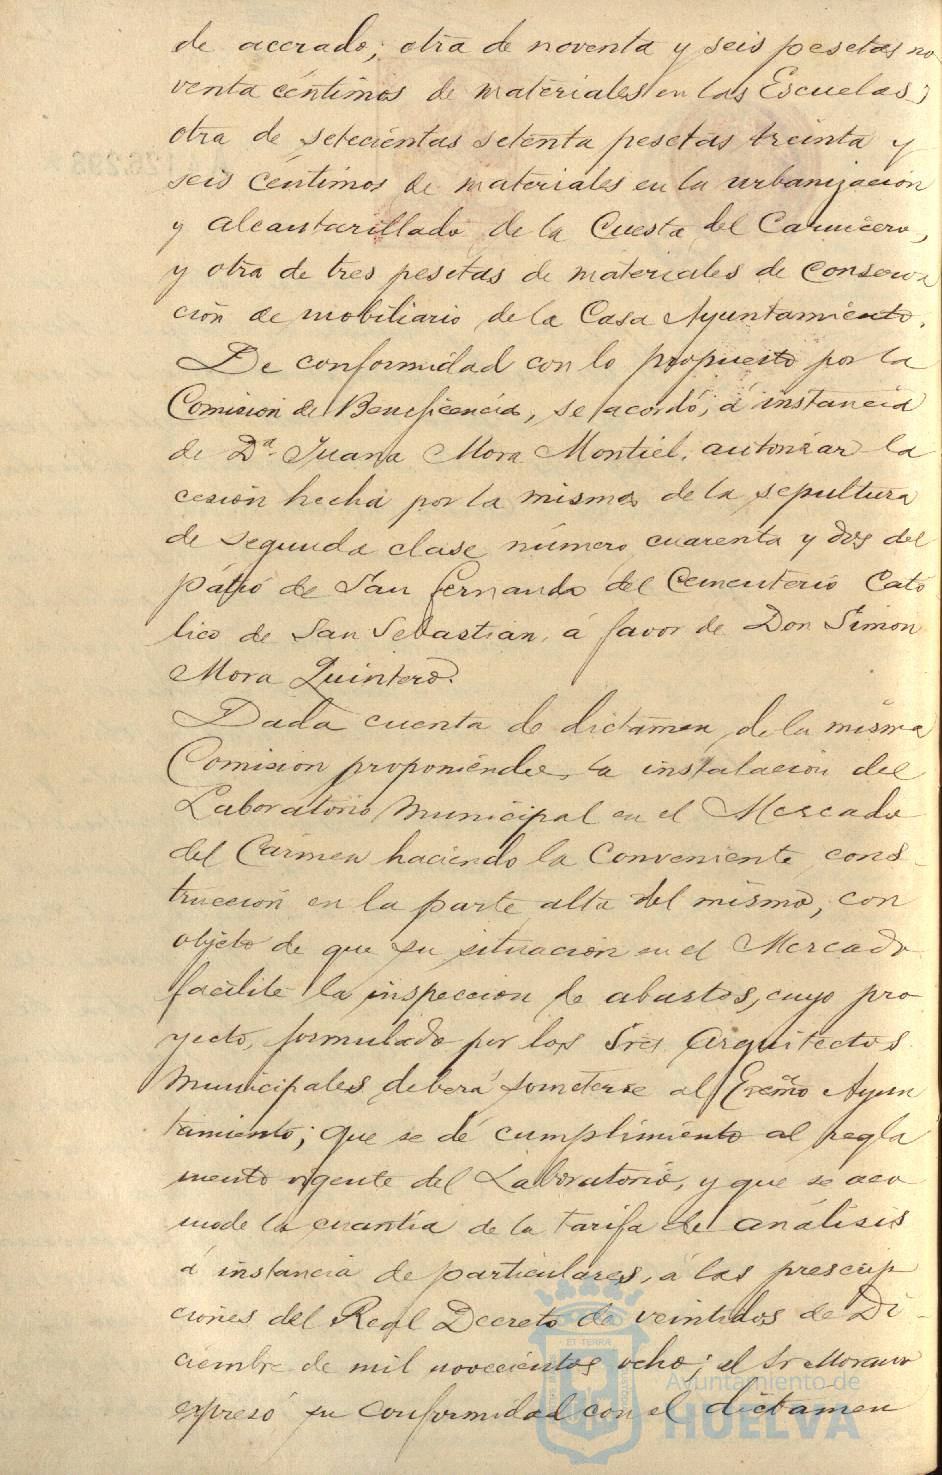 de acerado; otra de noventa y seis pesetas no
venta céntimos de materiales en las Escuelas;
otra de setecientas setenta pesetas treinta y
seis céntimos de materiales en la urbanización
y alcantarillado de la Cuesta del Carnicero,
y otra de tres pesetas de materiales de conserva
ción de mobiliario de la Casa Ayuntamiento.
De conformidad con lo propuesto por la
Comisión de Beneficencia, se acordó, á instancia
de Dª. Juana Mora Montiel, autorizar la
cesión hecha por la misma de la sepultura
de segunda clase número cuarenta y dos del
patio de San Fernando del Cementerio Cató
lico de San Sebastián, á favor de Don Simón
Mora Quintero.
Dada cuenta de dictamen de la misma
Comisión proponiendo la instalación del
Laboratorio Municipal en el Mercado
del Carmen haciendo la conveniente cons-
trucción en la parte alta del mismo, con
objeto de que su situación en el Mercado
facilite la inspección de abastos, cuyo pro
yecto, formulado por los Sres Arquitectos
Municipales deberá someterse al Excmo Ayun
tamiento; que se dé cumplimiento al regla
mento vigente del Laboratorio, y que se aco
mode la cuantía de la tarifa de análisis
á instancia de particulares, á las prescrip
ciones del Real Decreto de veintidos de Di-
ciembre de mil novecientos ocho; el Sr Moreno
expresó su conformidad con el dictamen
ET TERRA
Ayuntamiento de
HUELVA